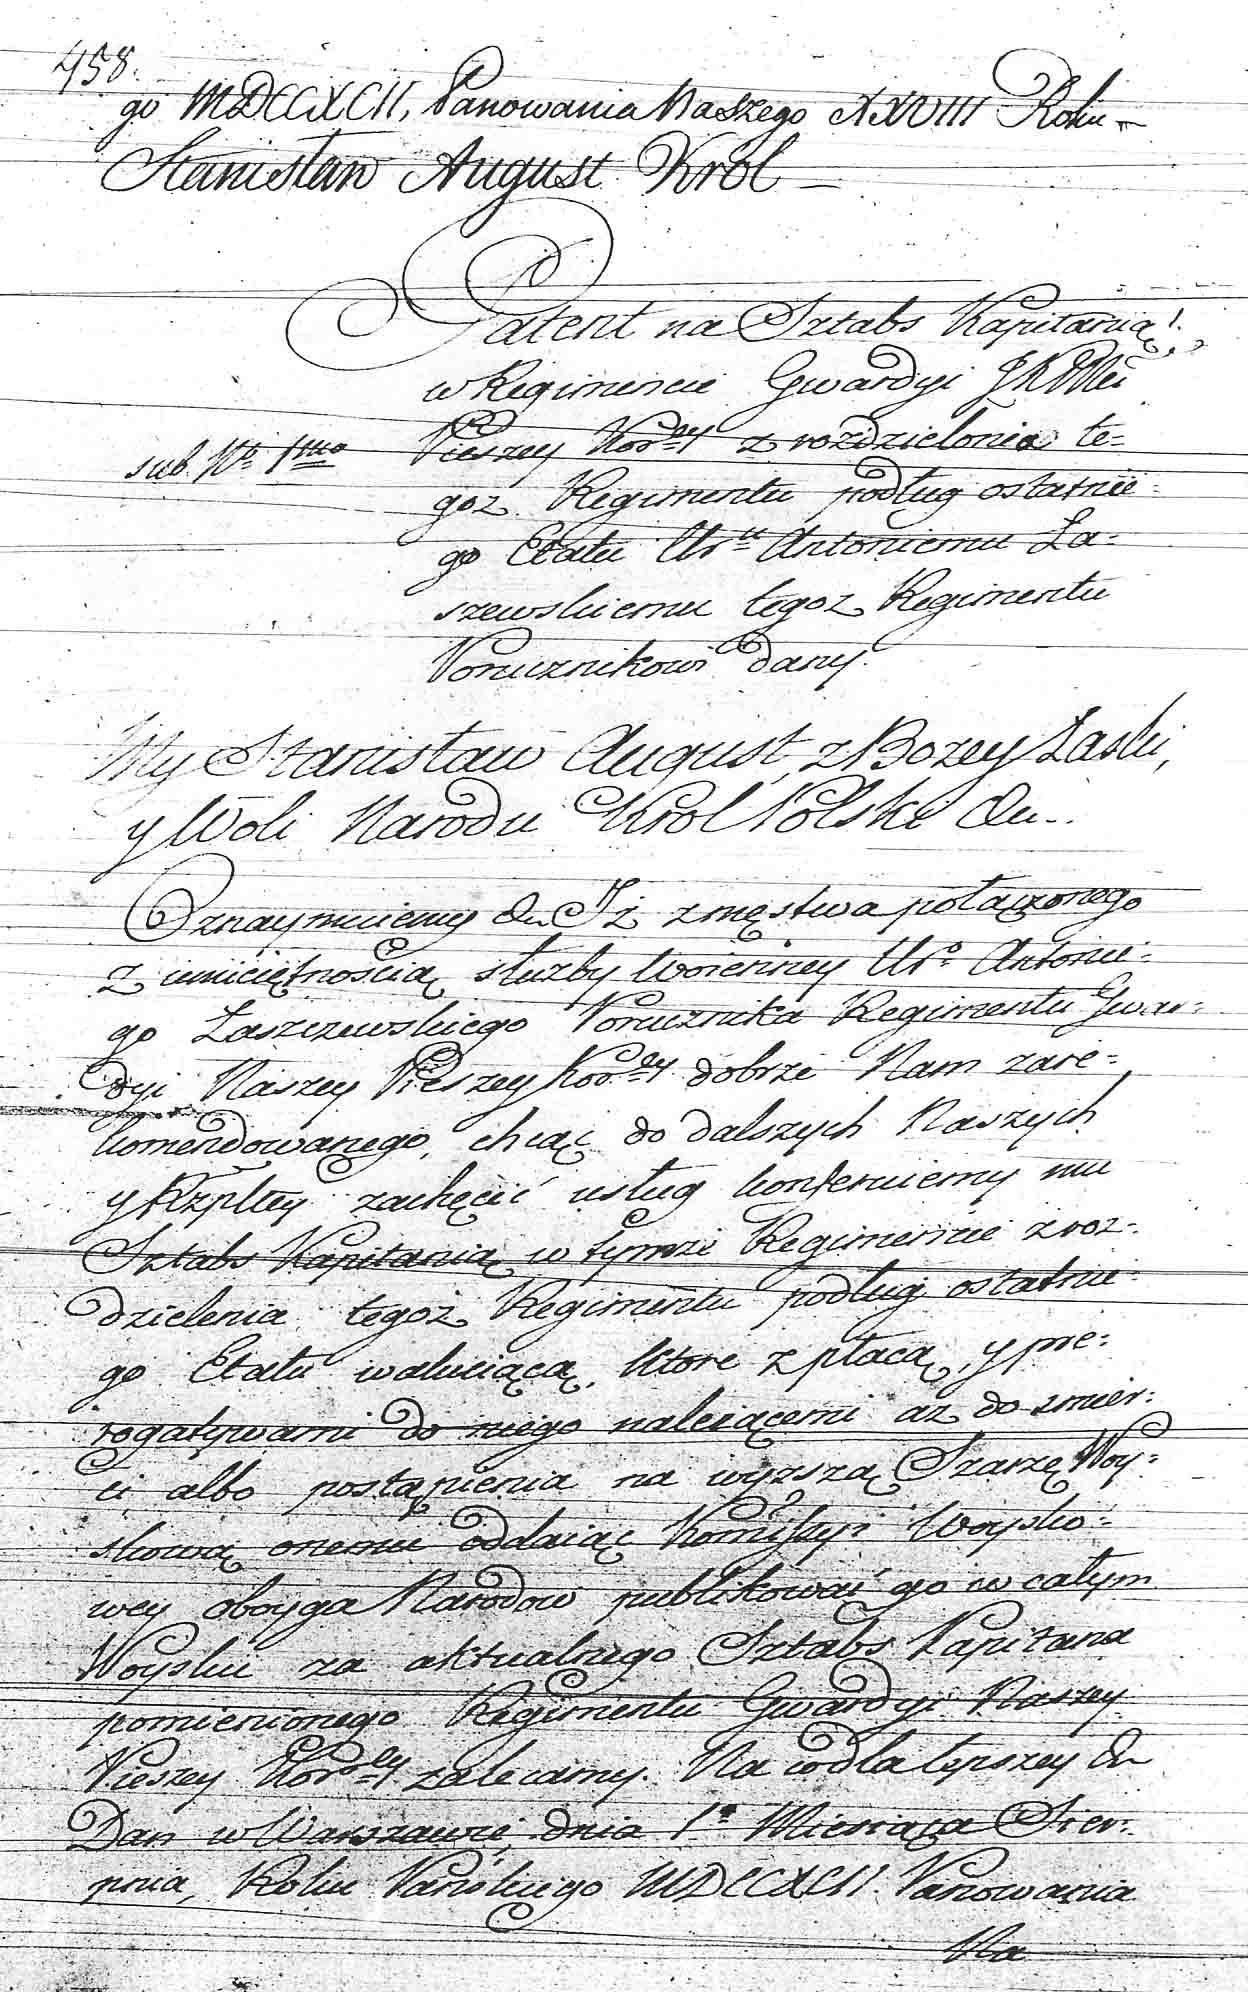 458.
go MDCCXCII, Panowania Naszego XXVIII Roku
Stanisław August Krol
Patent na Sztabs Kapitanią
w Regimencie Gwardyi JKMci
sub. No 1mo
Pieszey Kor:ey z rozdzielenia te-
goz Regimentu podług ostatnie-
go Etatu Ur:u Antoniemu Ła-
szewskiemu tegoz Regimentu
Porucznikowi dany.
My Stanisław August, z Bozey Łaski,
y Woli Narodu Krol Polski &c..
Oznaymuiemy &c Iż z męstwa połączonego
z umieiętnością służby woienney Ur:o Antonie-
go Łaszczewskiego Porucznika Regimentu Gwar-
dyi Naszey Pieszey Kor:ey dobrze Nam zare-
komendowanego, chcąc do dalszych Naszych
y Rzpltey zachęcić usług konferuiemy mu
Sztabs Kapitanią w tymże Regimencie z roz-
dzielenia tegoż Regimentu podług ostatnie-
go Etatu wakuiącą, ktore z płacą, y pre-
rogatywami do niego należącemi az do smier-
ci albo postąpienia na wyzszą Szarzę Woy-
skową onemu oddaiąc Kommissyi Woysko-
wey oboyga Narodow publikować go w całym
Woysku za aktualnego Sztabs Kapitana
pomienionego Regimentu Gwardyi Naszey
Pieszey Kor:ey zalecamy. Na co dla lepszey &c
Dan w Warszawie, dnia 1o Miesiąca Sier-
pnia, Roku Pańskiego MDCCXCII. Panowania
Na